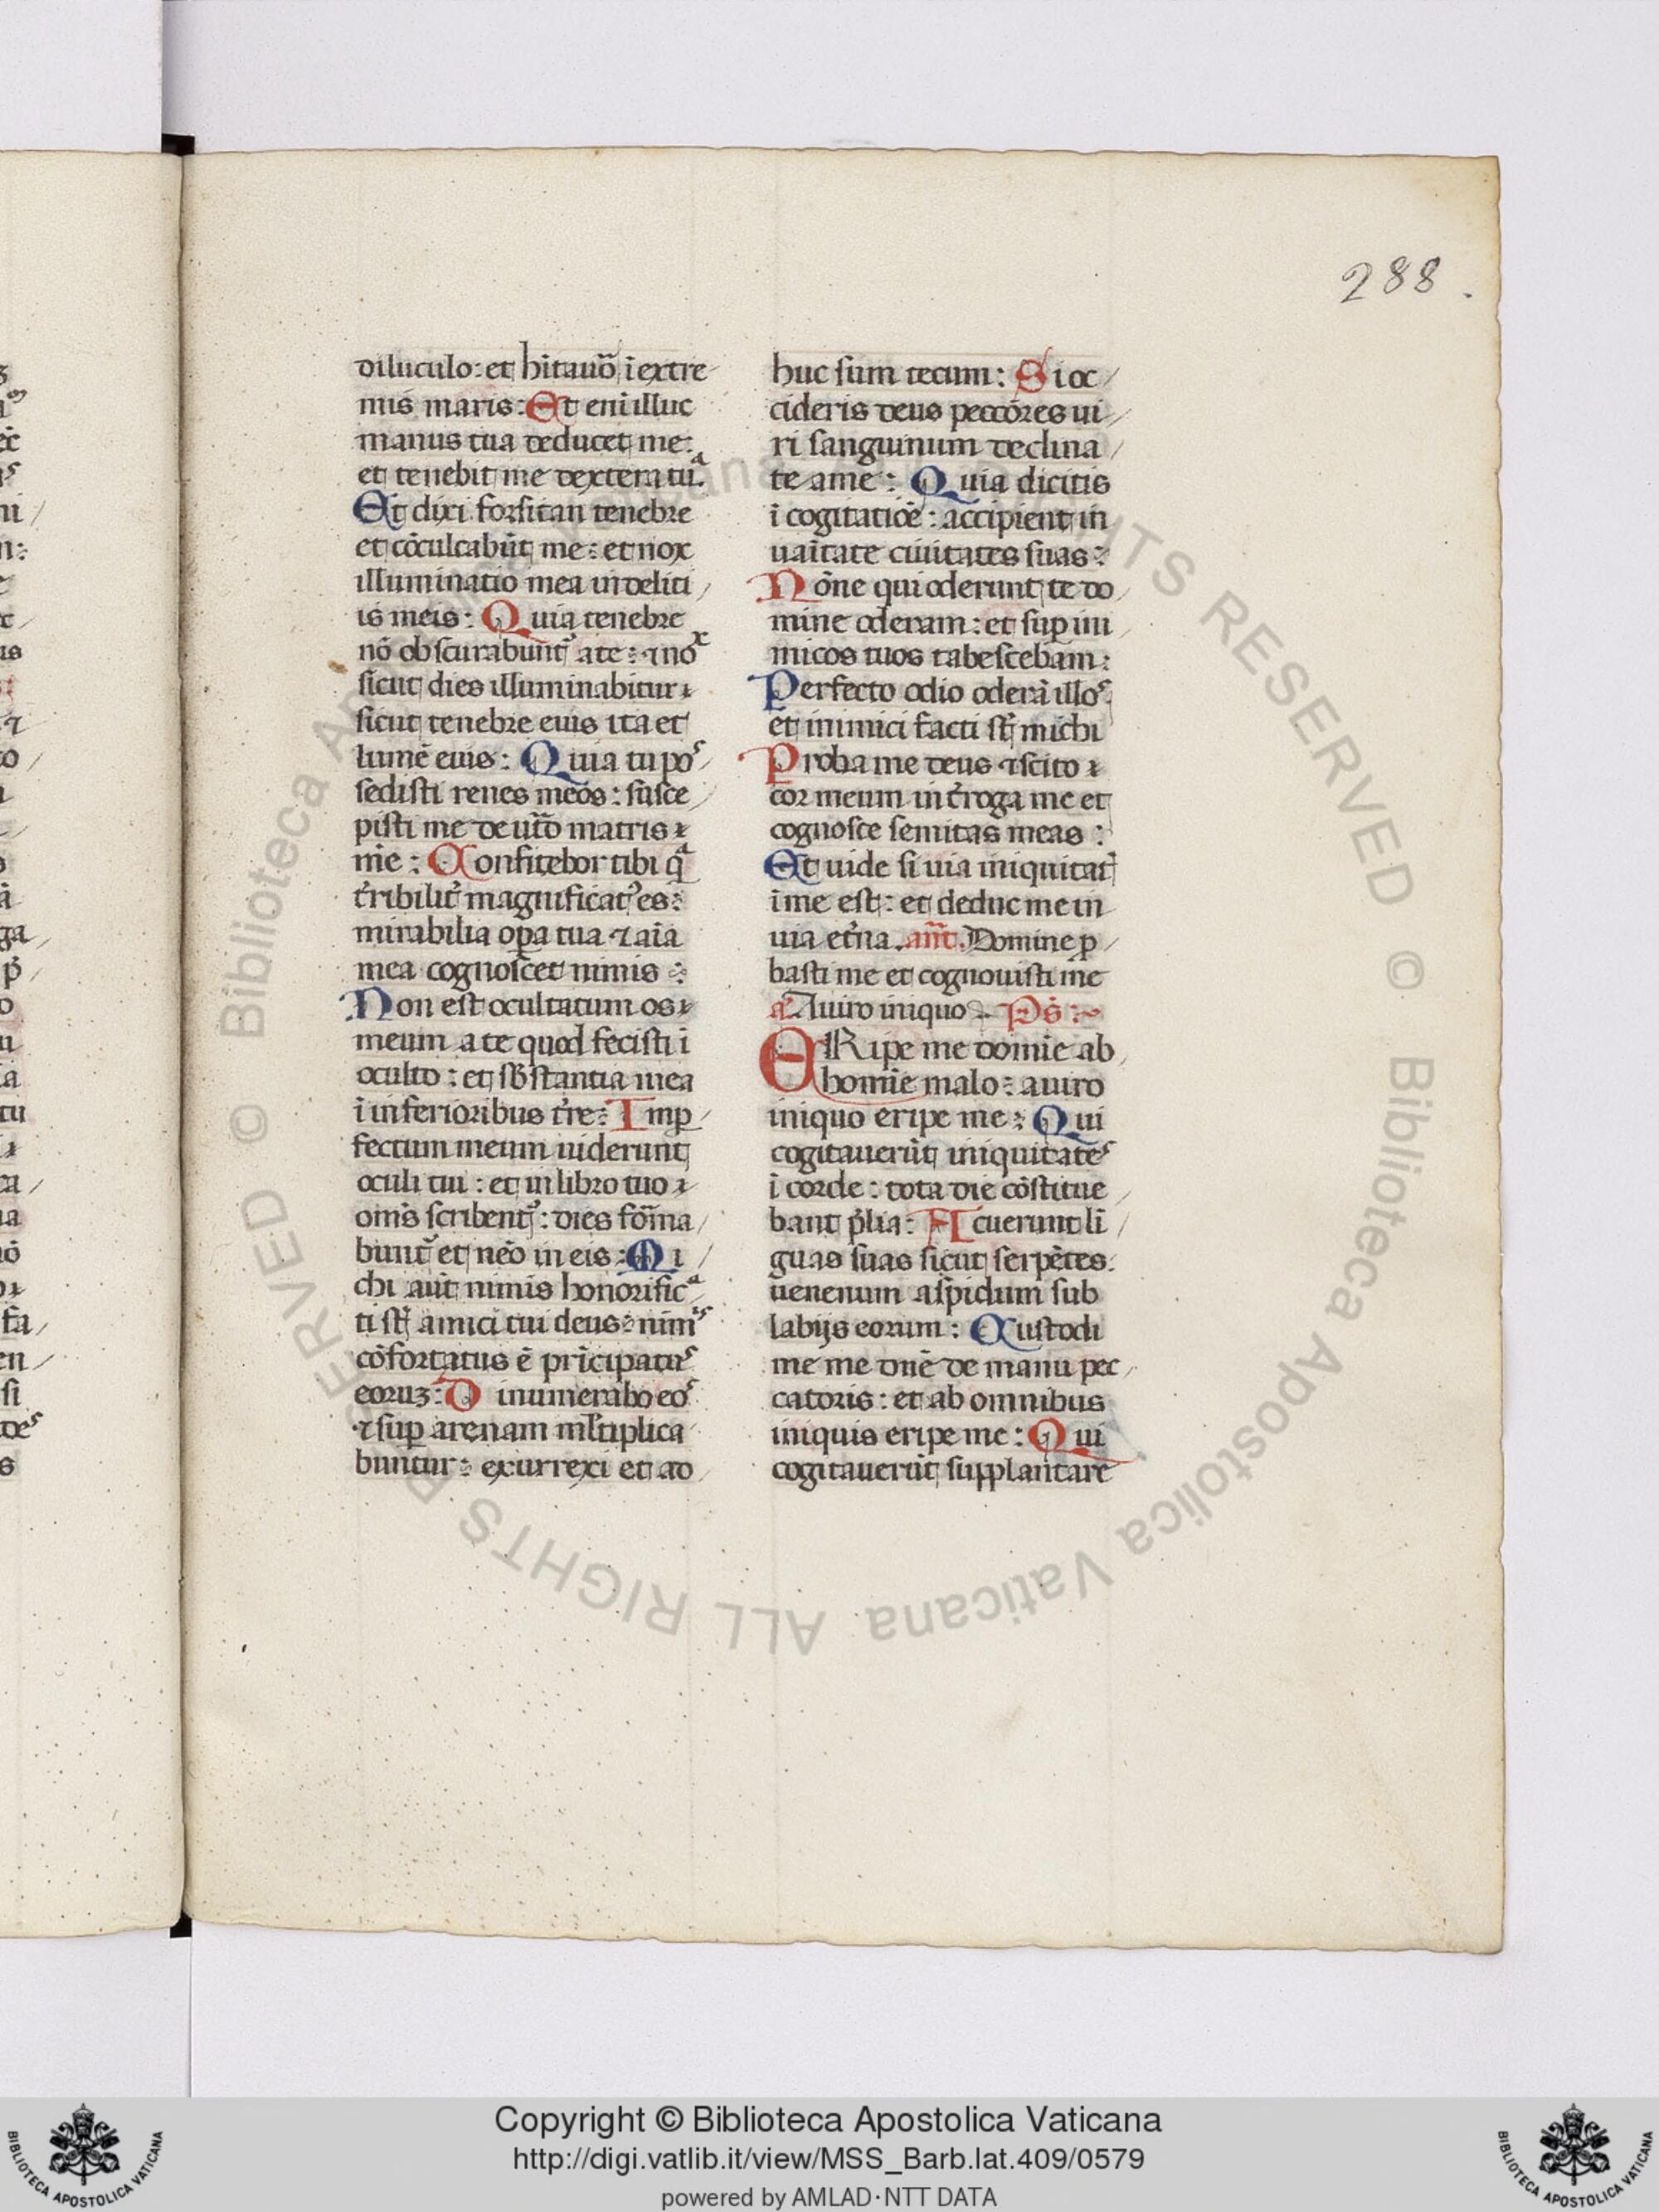 288.
diluculo: et hitauō ī extre
mis maris: Et eni illuc
manus tua deducet me:
et tenebit me dextera tua.
Et dixi forsitan tenebre
et cōculcabūt me: et nox
illuminatio mea in deliti
is meis: Quia tenebre
nō obscurabunt̉ a te: ⁊ nox
sicut dies illuminabitur
sicut tenebre euis ita et
lumē euis: Quia tu pos
sedisti renes meos: susce
pisti me de ut̉o matris
mē: Confitebor tibi qa
t̉ribilit̉ magnificat̉ es:
mirabilia oꝑa tua ⁊ aīa
mea cognoscet nimis:
Non est ocultatum os
meum a te quod fecisti ī
oculto: et sb̄stantia mea
ī inferioribus t̉re: Imꝑ
fectum meum uiderunt
oculi tui: et in libro tuo
om̄s scribent̉: dies for̄ma
bunt̉ et nēo in eis: Mi
chi aut̄ nimis honorifica
ti st̄ amici tui deus: nimis
cōfortatus ē prīcipatus
eoruꝫ: D inumerabo eos
⁊ suꝑ arenam ml̄tiplica
buntur: exurrexi et ad
huc sum tecum: Si oc
cideris deus peccōres ui
ri sanguinum declina
te a me: Quia dicitis
ī cogitatiōe: accipient in
uaītate ciuitates suas:
Nōne qui oderunt te do
mine oderam: et suꝑ ini
micos tuos tabescebam:
Perfecto odio oderā illos
et inimici facti st̄ michi
Proba me deus ⁊ scito
cor meum int̉roga me et
cognosce semitas meas:
Et uide si uia iniquitat̄
ī me est: et deduc me in
uia et̉na. ant̄. Domine ꝓ
basti me et cognouisti me
A uiro iniquo. Ps̄:
ERipe me domīe ab
homīe malo: a uiro
iniquo eripe me: Qui
cogitauerūt iniquitates
ī corde: tota die cōstitue
bant p̄lia: Acuerunt lī
guas suas sicut serpētes.
uenenum aspidum sub
labijs eorum: Custodi
me me dn̄e de manu pec
catoris: et ab omnibus
iniquis eripe me: Qui
cogitauerūt supplantare
Copyright © Biblioteca Apostolica Vaticana
http://digi.vatlib.it/view/MSS_Barb.lat.409/0579
powered by AMLAD·NTT DATA
BIBLIOTECA APOSTOLICA VATICANA
BIBLIOTECA APOSTOLICA VATICANA
© Biblioteca Apostolica Vaticana ALL RIGHTS RESERVED
© Biblioteca Apostolica Vaticana ALL RIGHTS RESERVED